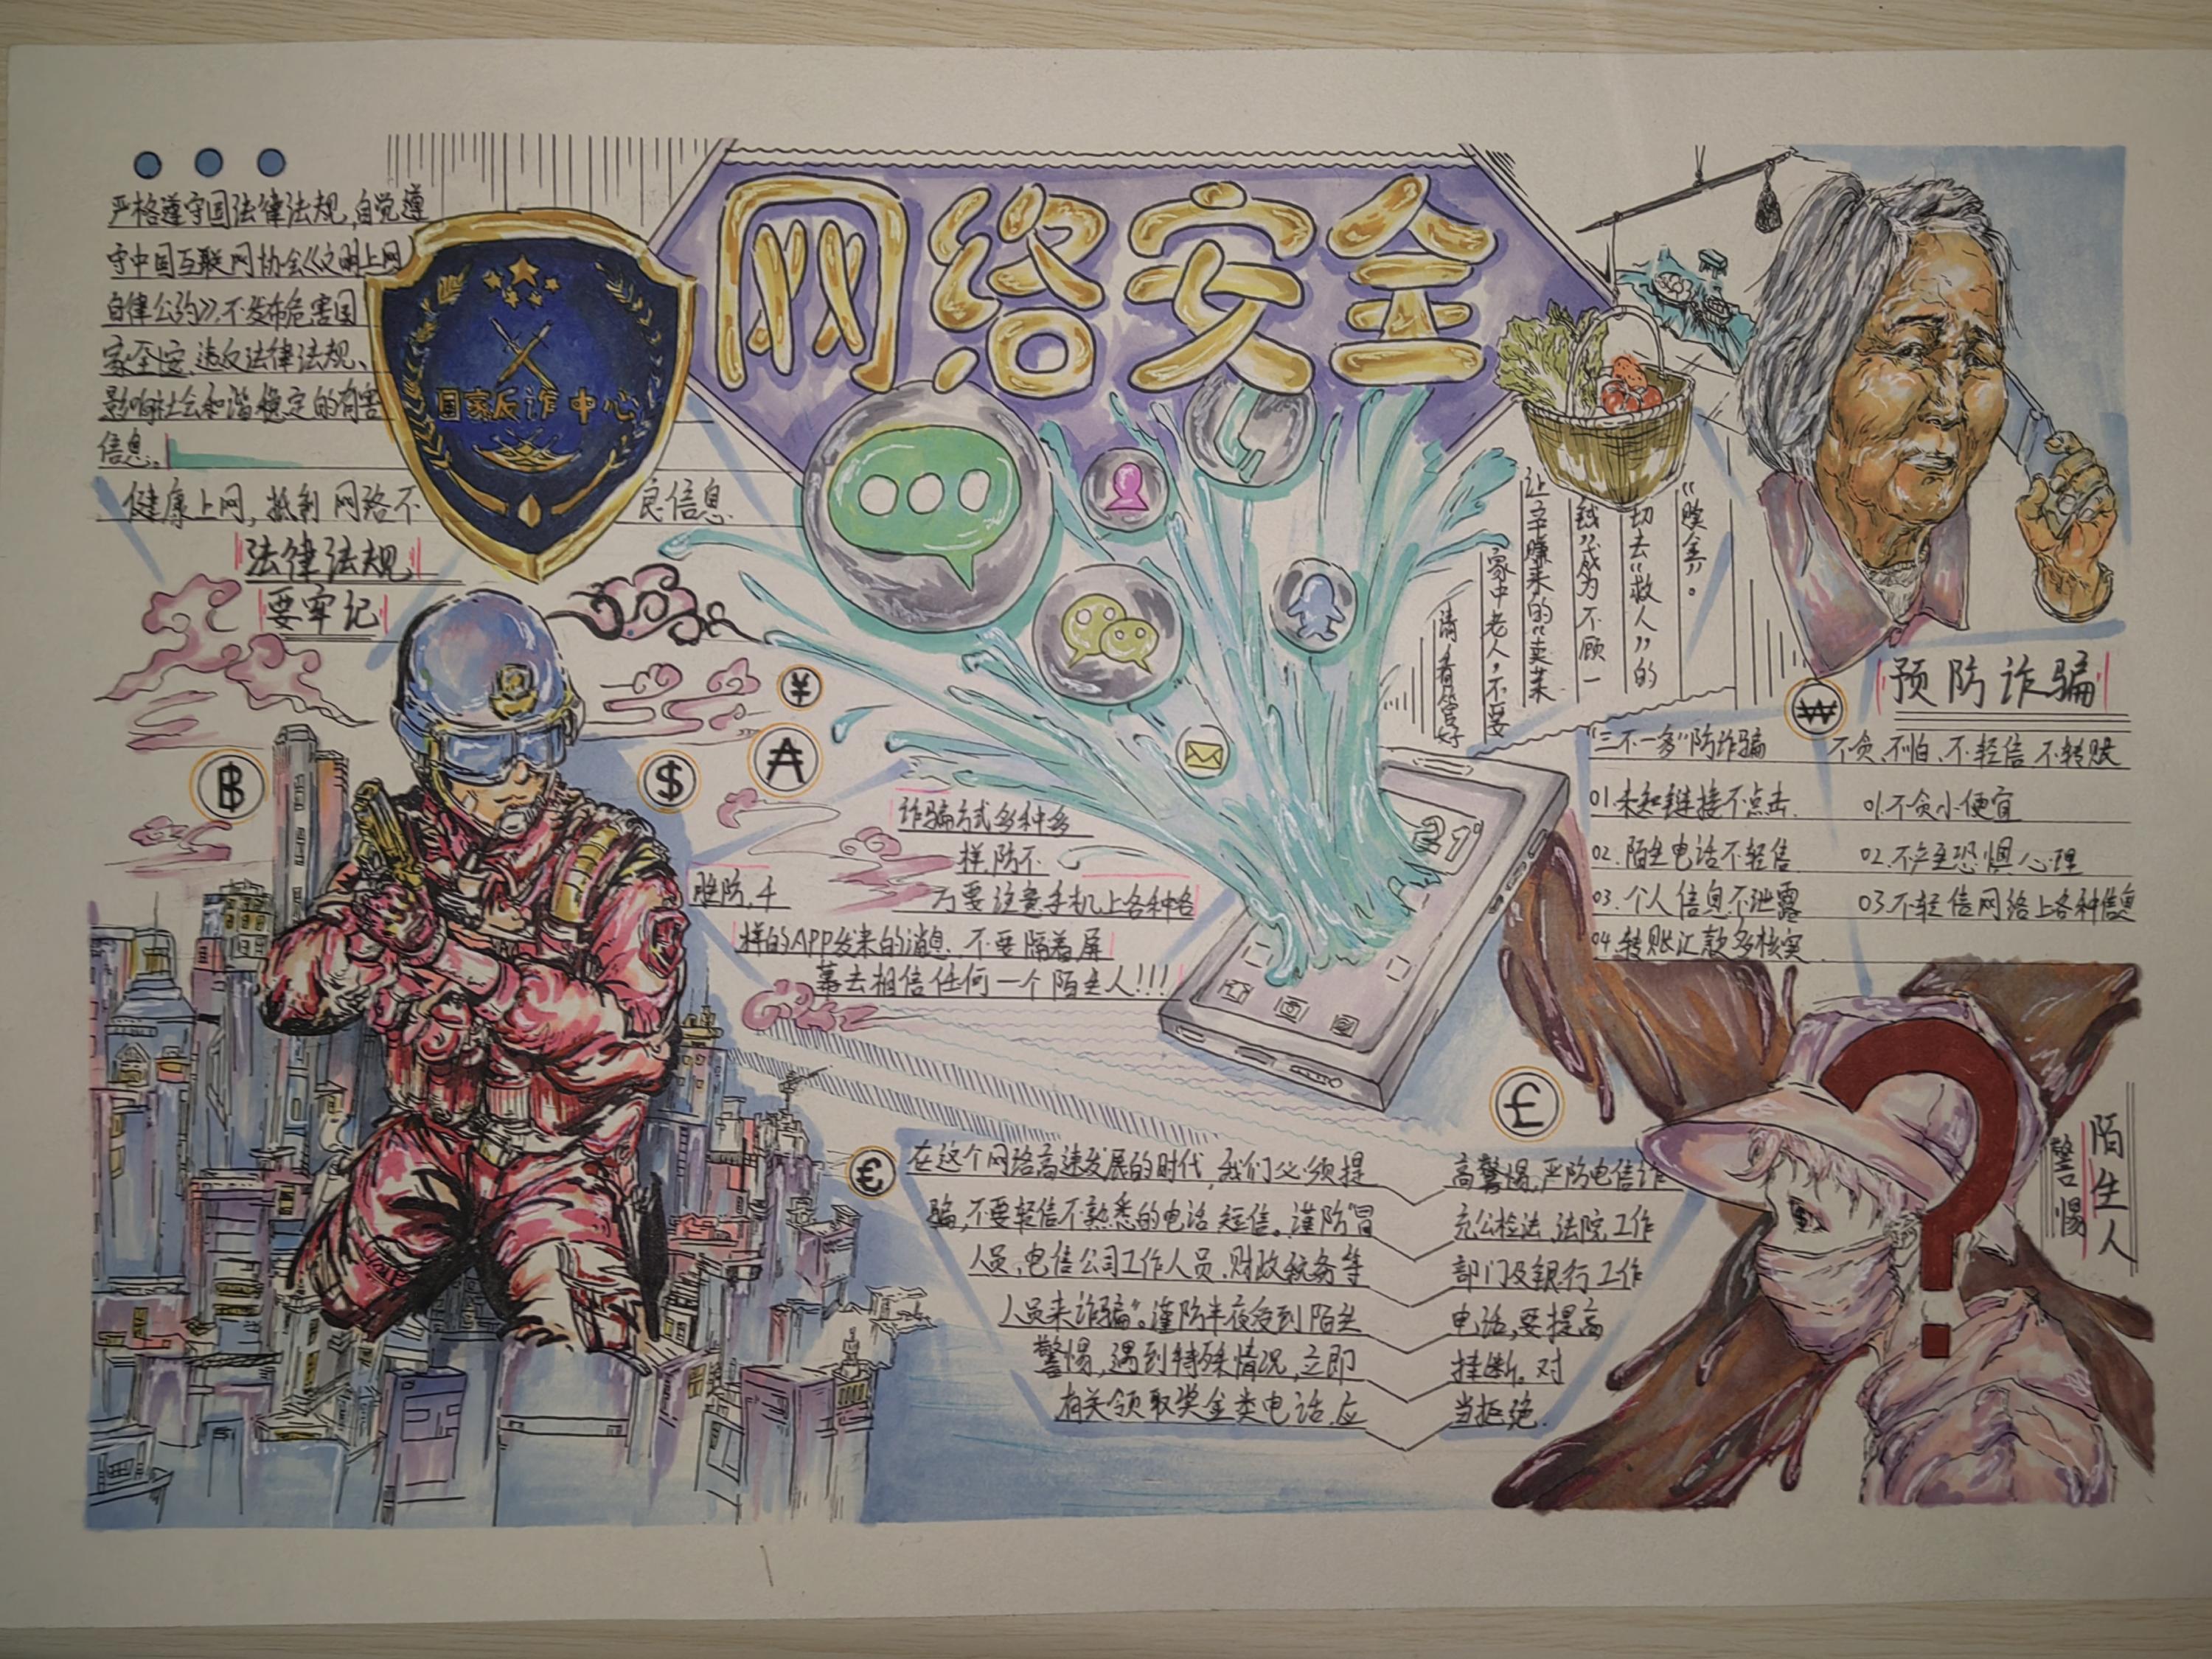 网络安全
严格遵守国法律法规,自觉遵
守中国互联网协会《文明上网
自律公约》,不发布危害国
家安定、违反法律法规、
影响社会和谐稳定的有害
信息。
健康上网,抵制网络不良信息
法律法规
要牢记
国家反诈中心
请看管好
家中老人,不要
让辛赚来的“卖菜
钱”成为不顾一
切去“救人”的
“赎金”。
预防诈骗
“三不一多”防诈骗
01.未知链接不点击.
02.陌生电话不轻信
03.个人信息不泄露
04.转账汇款多核实
不贪、不怕、不轻信、不转账
01.不贪小便宜
02.不产生恐惧心理
03.不轻信网络上各种信息
诈骗方式多种多
样,防不
胜防,千万要注意手机上各种各
样的APP发来的消息,不要隔着屏
幕去相信任何一个陌生人!!!
21°
฿
$
¥
₳
₩
£
€
在这个网络高速发展的时代,我们必须提高警惕,严防电信诈
骗,不要轻信不熟悉的电话 短信。谨防“冒充公检法、法院工作
人员、电信公司工作人员、财政税务等部门及银行工作
人员来诈骗”。谨防半夜受到陌生电话,要提高
警惕,遇到特殊情况,立即挂断。对
有关领取奖金类电话,应当拒绝.
陌生人
警惕